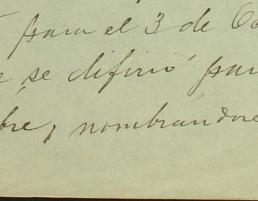 para el 3 de Oc
se difirió par
bre, nombrandose